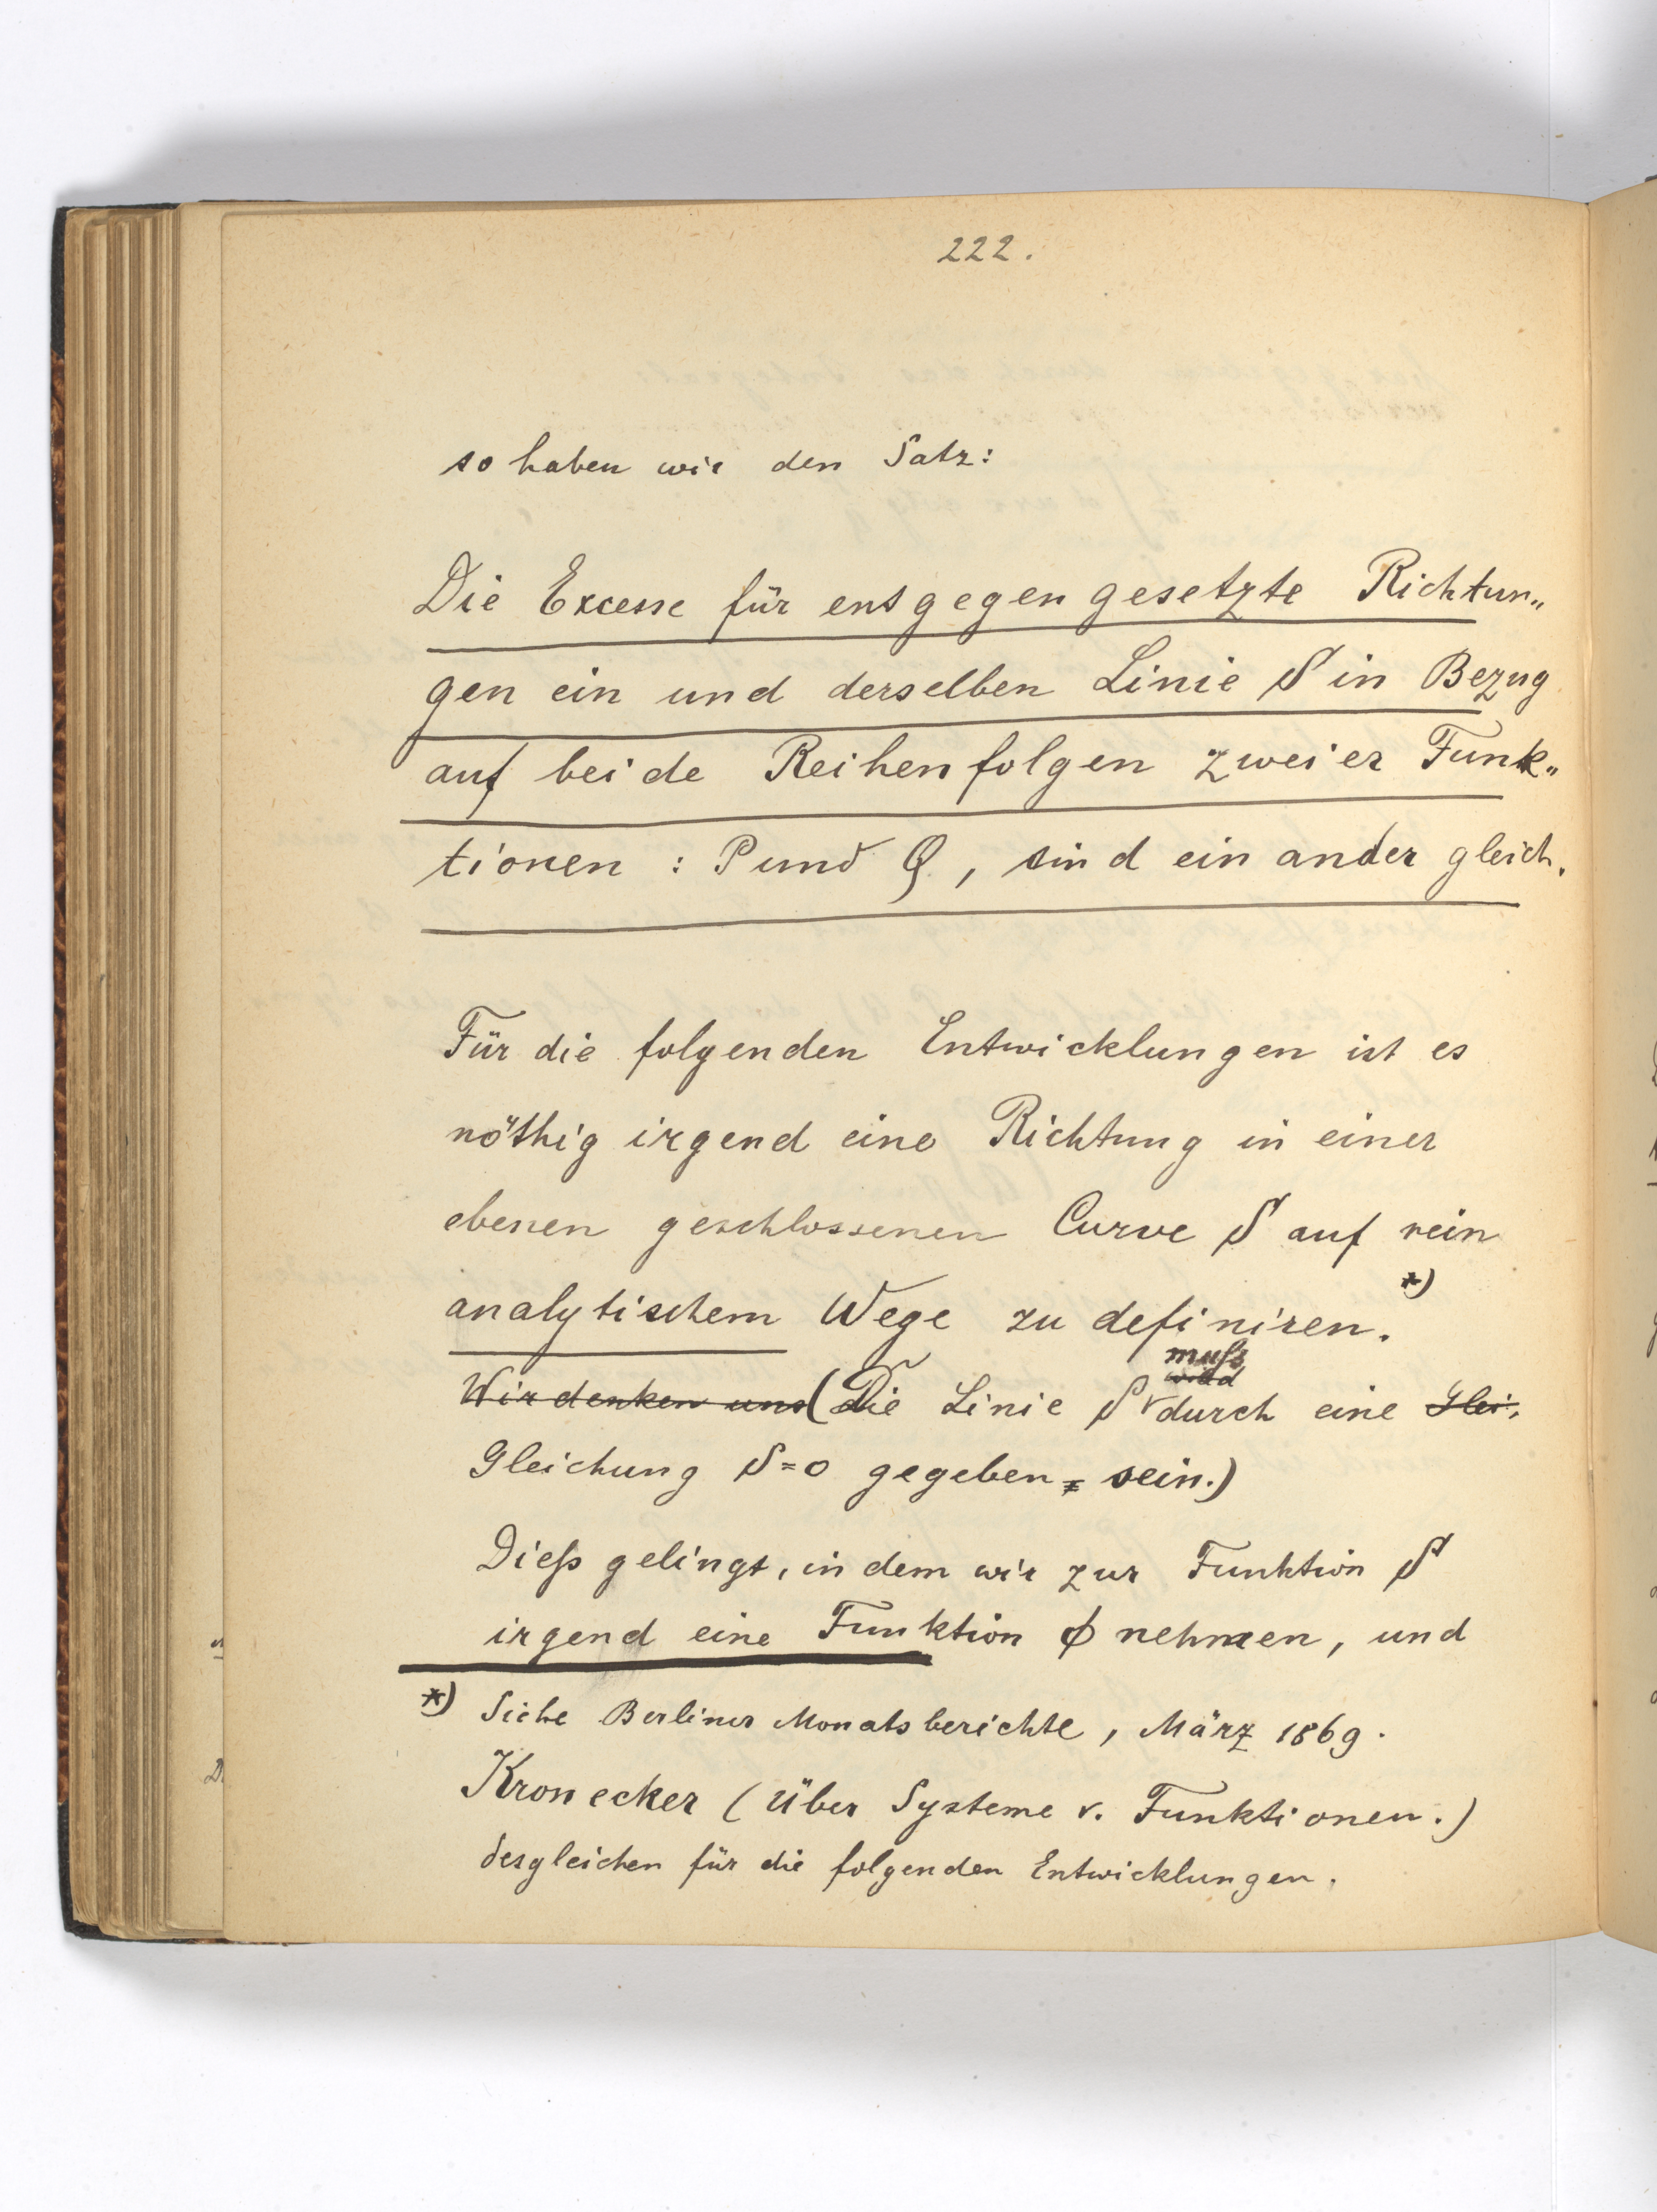 222.
so haben wir den Satz:
Die Excesse für entgegengesetzte Richtun„
gen ein und derselben Linie S in Bezug
auf beide Reihenfolgen zweier Funk„
tionen : P und Q, sind einander gleich.
Für die folgenden Entwicklungen ist es
nöthig irgend eine Richtung in einer
ebenen geschlossenen Curve S auf rein
analytischem Wege zu definiren. *)
muß
wird
Wir denken uns (Die Linie S durch eine Glei„
Gleichung S=0 gegeben, sein.)
Dieß gelingt, indem wir zur Funktion S
irgend eine Funktion ϕ nehmen, und
*) Siehe Berliner Monatsberichte, März 1869.
Kronecker (Über Systeme v. Funktionen.)
desgleichen für die folgenden Entwicklungen.